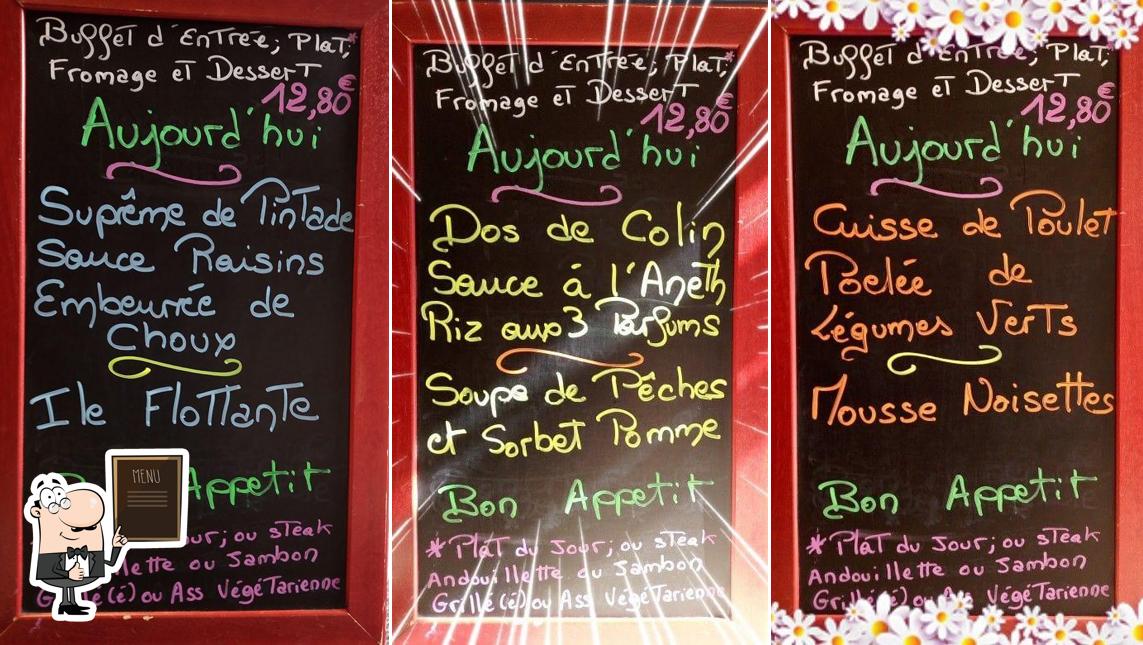 Buffet d'Entrée, Plat,*
Fromage et Dessert
12,80€
Aujourd'hui
Suprême de Pintade
Sauce Raisins
Embeurrée de
Choux
Ile Flottante
Appetit
MENU
Jour; ou steak
llette ou Jambon
é(é) ou Ass Végétarienne
Buffet d'Entrée, Plat,*
Fromage et Dessert
12,80€
Aujourd'hui
Dos de Colin
Sauce á l'Aneth
Riz aux 3 Parfums
Soupe de Pêches
et Sorbet Pomme
Bon Appetit
*Plat du Jour; ou steak
Andouillette ou Jambon
Grillé(é) ou Ass Végétarienne
Buffet d'Entrée, Plat,*
Fromage et Dessert
12,80€
Aujourd'hui
Cuisse de Poulet
Poelée de
Légumes Verts
Mousse Noisettes
Bon Appetit
*Plat du Jour; ou steak
Andouillette ou Jambon
Grillé(é) ou Ass Végétarienne